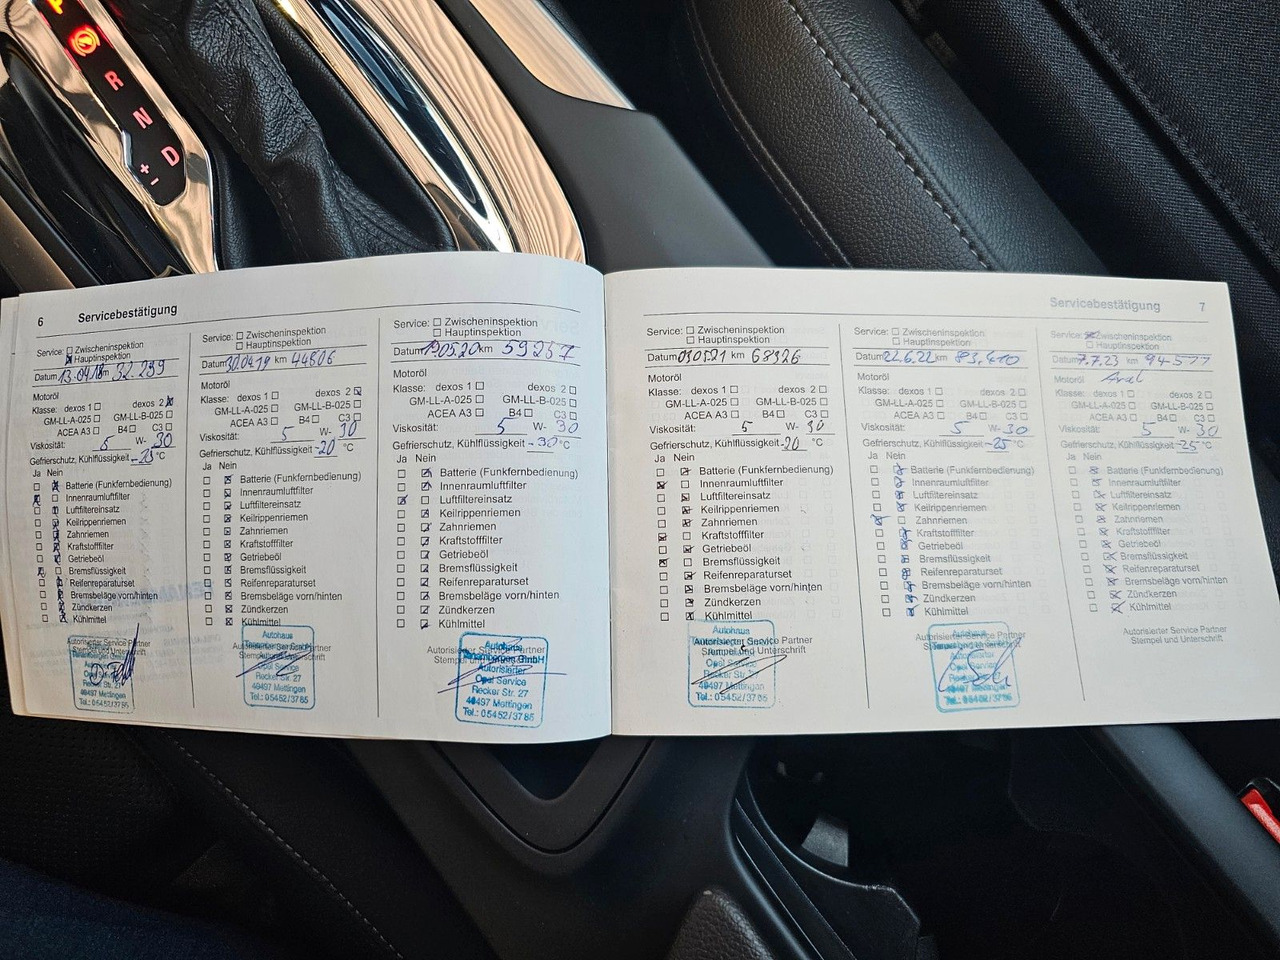 R
N
D
+
-
6 Servicebestätigung
Service: Zwischeninspektion
Hauptinspektion
Datum 13.04.18 km 32.299
Motoröl
Klasse: dexos 1 dexos 2
GM-LL-A-025 GM-LL-B-025
ACEA A3 B4 C3
Viskosität: 5 W- 30
Gefrierschutz, Kühlflüssigkeit -25 °C
Ja Nein
Batterie (Funkfernbedienung)
Innenraumluftfilter
Luftfiltereinsatz
Keilrippenriemen
Zahnriemen
Kraftstofffilter
Getriebeöl
Bremsflüssigkeit
Reifenreparaturset
Bremsbeläge vorn/hinten
Zündkerzen
Kühlmittel
Autorisierter Service Partner
Opel Service
Recker Str. 27
49497 Mettingen
Tel.: 05452/3785
Service: Zwischeninspektion
Hauptinspektion
Datum 30.04.19 km 44606
Motoröl
Klasse: dexos 1 dexos 2
GM-LL-A-025 GM-LL-B-025
ACEA A3 B4 C3
Viskosität: 5 W- 30
Gefrierschutz, Kühlflüssigkeit -20 °C
Ja Nein
Batterie (Funkfernbedienung)
Innenraumluftfilter
Luftfiltereinsatz
Keilrippenriemen
Zahnriemen
Kraftstofffilter
Getriebeöl
Bremsflüssigkeit
Reifenreparaturset
Bremsbeläge vorn/hinten
Zündkerzen
Kühlmittel
Autohaus
Opel Service
Recker Str. 27
49497 Mettingen
Tel.: 05452/3785
Service: Zwischeninspektion
Hauptinspektion
Datum 190520 km 59257
Motoröl
Klasse: dexos 1 dexos 2
GM-LL-A-025 GM-LL-B-025
ACEA A3 B4 C3
Viskosität: 5 W- 30
Gefrierschutz, Kühlflüssigkeit -30 °C
Ja Nein
Batterie (Funkfernbedienung)
Innenraumluftfilter
Luftfiltereinsatz
Keilrippenriemen
Zahnriemen
Kraftstofffilter
Getriebeöl
Bremsflüssigkeit
Reifenreparaturset
Bremsbeläge vorn/hinten
Zündkerzen
Kühlmittel
Autohaus
Autorisierter
Opel Service
Recker Str. 27
49497 Mettingen
Tel.: 05452/3785
Servicebestätigung 7
Service: Zwischeninspektion
Hauptinspektion
Datum 030521 km 68326
Motoröl
Klasse: dexos 1 dexos 2
GM-LL-A-025 GM-LL-B-025
ACEA A3 B4 C3
Viskosität: 5 W- 30
Gefrierschutz, Kühlflüssigkeit -20 °C
Ja Nein
Batterie (Funkfernbedienung)
Innenraumluftfilter
Luftfiltereinsatz
Keilrippenriemen
Zahnriemen
Kraftstofffilter
Getriebeöl
Bremsflüssigkeit
Reifenreparaturset
Bremsbeläge vorn/hinten
Zündkerzen
Kühlmittel
Autohaus
Autorisierter Service Partner
Opel Service
Recker Str. 27
49497 Mettingen
Tel.: 05452/3785
Service: Zwischeninspektion
Hauptinspektion
Datum 22.6.22 km 83.410
Motoröl
Klasse: dexos 1 dexos 2
GM-LL-A-025 GM-LL-B-025
ACEA A3 B4 C3
Viskosität: 5 W- 30
Gefrierschutz, Kühlflüssigkeit -25 °C
Ja Nein
Batterie (Funkfernbedienung)
Innenraumluftfilter
Luftfiltereinsatz
Keilrippenriemen
Zahnriemen
Kraftstofffilter
Getriebeöl
Bremsflüssigkeit
Reifenreparaturset
Bremsbeläge vorn/hinten
Zündkerzen
Kühlmittel
Autohaus
Opel Service
Recker Str. 27
49497 Mettingen
Tel.: 05452/3785
Service: Zwischeninspektion
Hauptinspektion
Datum 7.7.23 km 94-577
Motoröl Aral
Klasse: dexos 1 dexos 2
GM-LL-A-025 GM-LL-B-025
ACEA A3 B4 C3
Viskosität: 5 W- 30
Gefrierschutz, Kühlflüssigkeit -25 °C
Ja Nein
Batterie (Funkfernbedienung)
Innenraumluftfilter
Luftfiltereinsatz
Keilrippenriemen
Zahnriemen
Kraftstofffilter
Getriebeöl
Bremsflüssigkeit
Reifenreparaturset
Bremsbeläge vorn/hinten
Zündkerzen
Kühlmittel
Autorisierter Service Partner
Stempel und Unterschrift